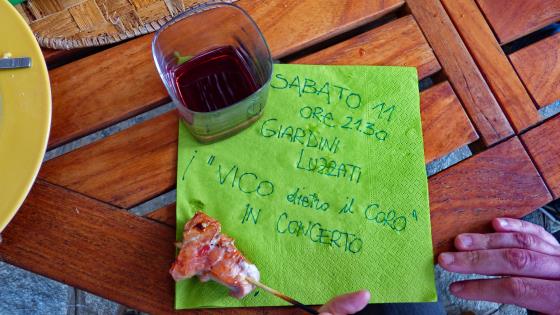 SABATO 11
ORE 21.30
GIARDINI
LUZZATI
¡ "VICO dietro il CORO"
IN CONCERTO